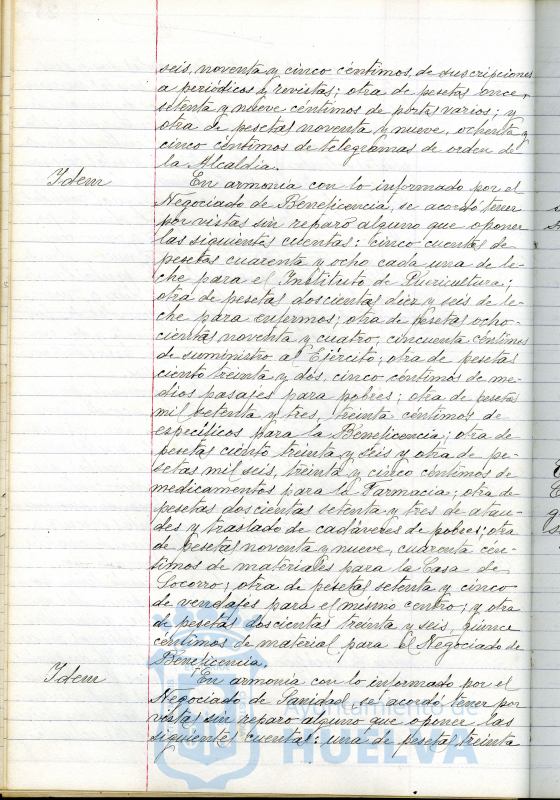 seis, noventa y cinco céntimos, de suscripciones
a periódicos y revistas; otra de pesetas once,
setenta y nueve céntimos de portes varios; y
otra de pesetas noventa y nueve, ochenta y
cinco céntimos de telegramas de orden de
la Alcaldía.
Idem
En armonía con lo informado por el
Negociado de Beneficencia, se acordó tener
por vistas sin reparo alguno que oponer
las siguientes cuentas: cinco cuentas de
pesetas cuarenta y ocho cada una de le-
che para el Instituto de Puericultura;
otra de pesetas doscientas diez y seis de le-
che para enfermos; otra de pesetas ocho-
cientas noventa y cuatro, cincuenta céntimos
de suministro al Ejército; otra de pesetas
ciento treinta y dos, cinco céntimos de me-
dios pasajes para pobres; otra de pesetas
mil setenta y tres, treinta céntimos de
específicos para la Beneficencia; otra de
pesetas ciento treinta y seis y otra de pe-
setas mil seis, treinta y cinco céntimos de
medicamentos para la Farmacia; otra de
pesetas doscientas setenta y tres de ataú-
des y traslado de cadáveres de pobres; otra
de pesetas noventa y nueve, cuarenta cén-
timos de materiales para la Casa de
Socorro; otra de pesetas setenta y cinco
de vendajes para el mismo centro; y otra
de pesetas doscientas treinta y seis, quince
céntimos de material para el Negociado de
Beneficencia.
Idem
En armonía con lo informado por el
Negociado de Sanidad, se acordó tener por
vistas sin reparo alguno que oponer las
siguientes cuentas: una de pesetas treinta
Ayuntamiento de
HUELVA